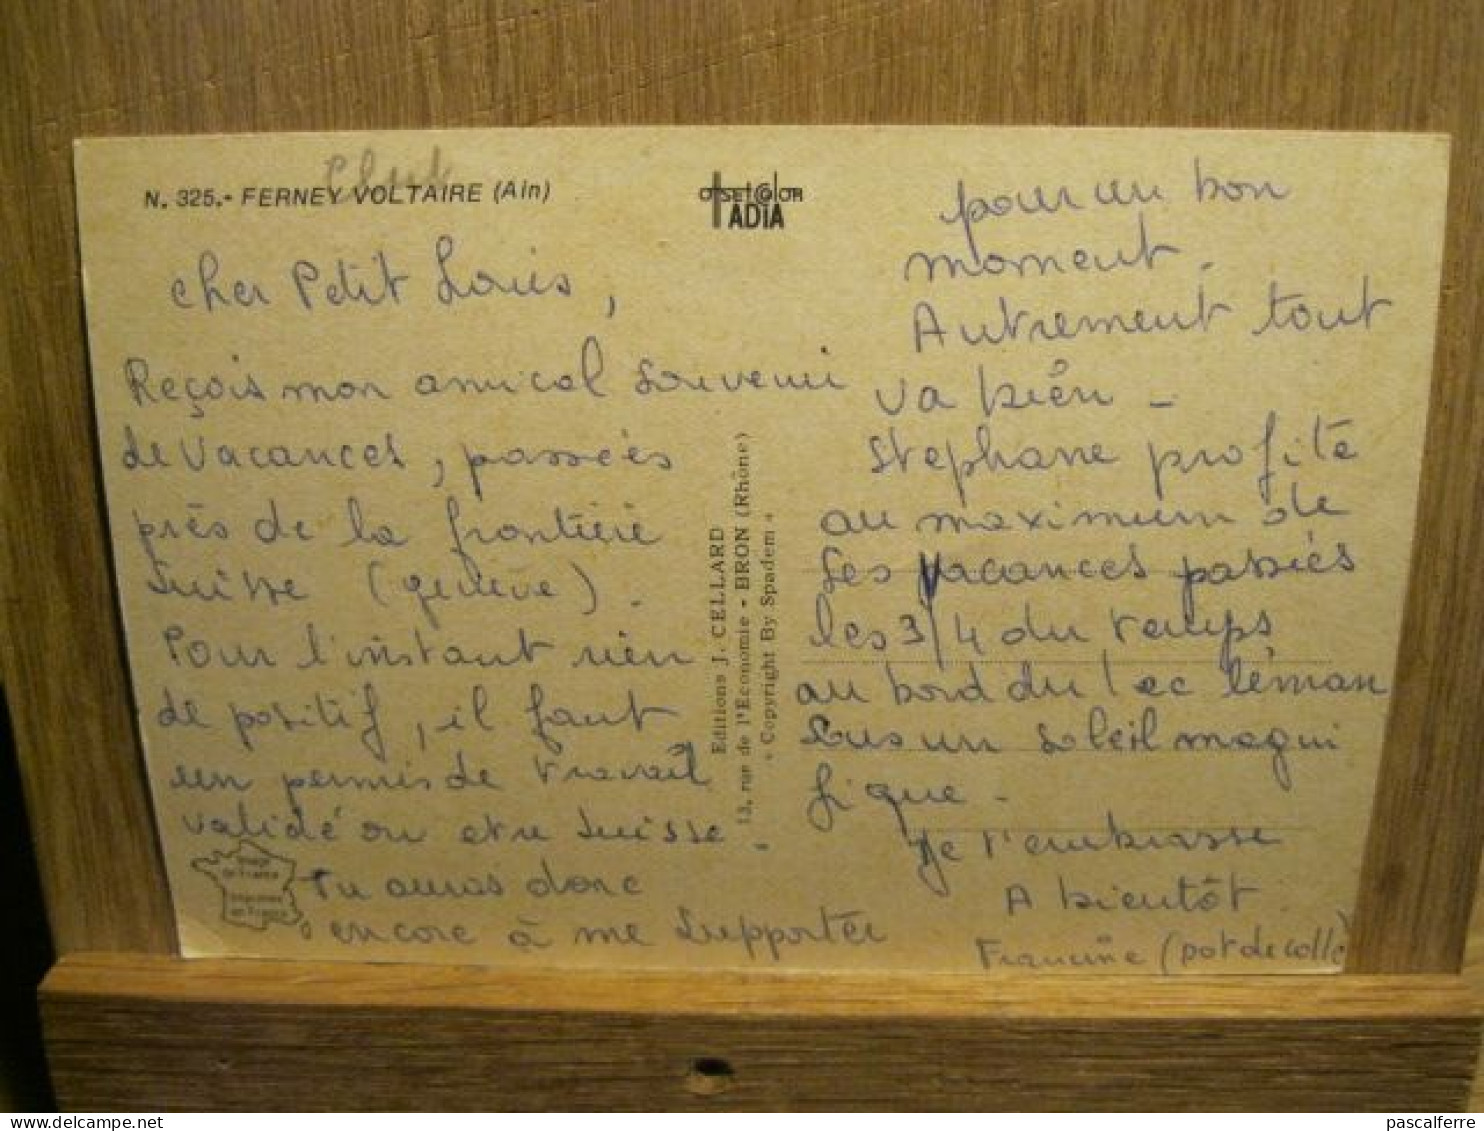 N. 325.- FERNEY VOLTAIRE (Ain)
OFFSET COLOR
ADIA
Cher Petit Louis,
Reçois mon amical souvenir
de vacances, passées
près de la frontière
suisse (genève).
Pour l'instant rien
de positif, il faut
un permis de travail
validé en suisse.
Tu auras donc
encore à me supporter
Image
de France
Imprimée
en France
Editions J. CELLARD
13, rue de l'Economie - BRON (Rhône)
« Copyright By Spadem »
pour un bon
moment.
Autrement tout
va bien -
Stephane profite
au maximum de
ses vacances passées
les 3/4 du temps
au bord du lac léman
sous un soleil magni
fique -
Je t'embrasse
A bientôt.
Francine (pot de colle)
pascalferre